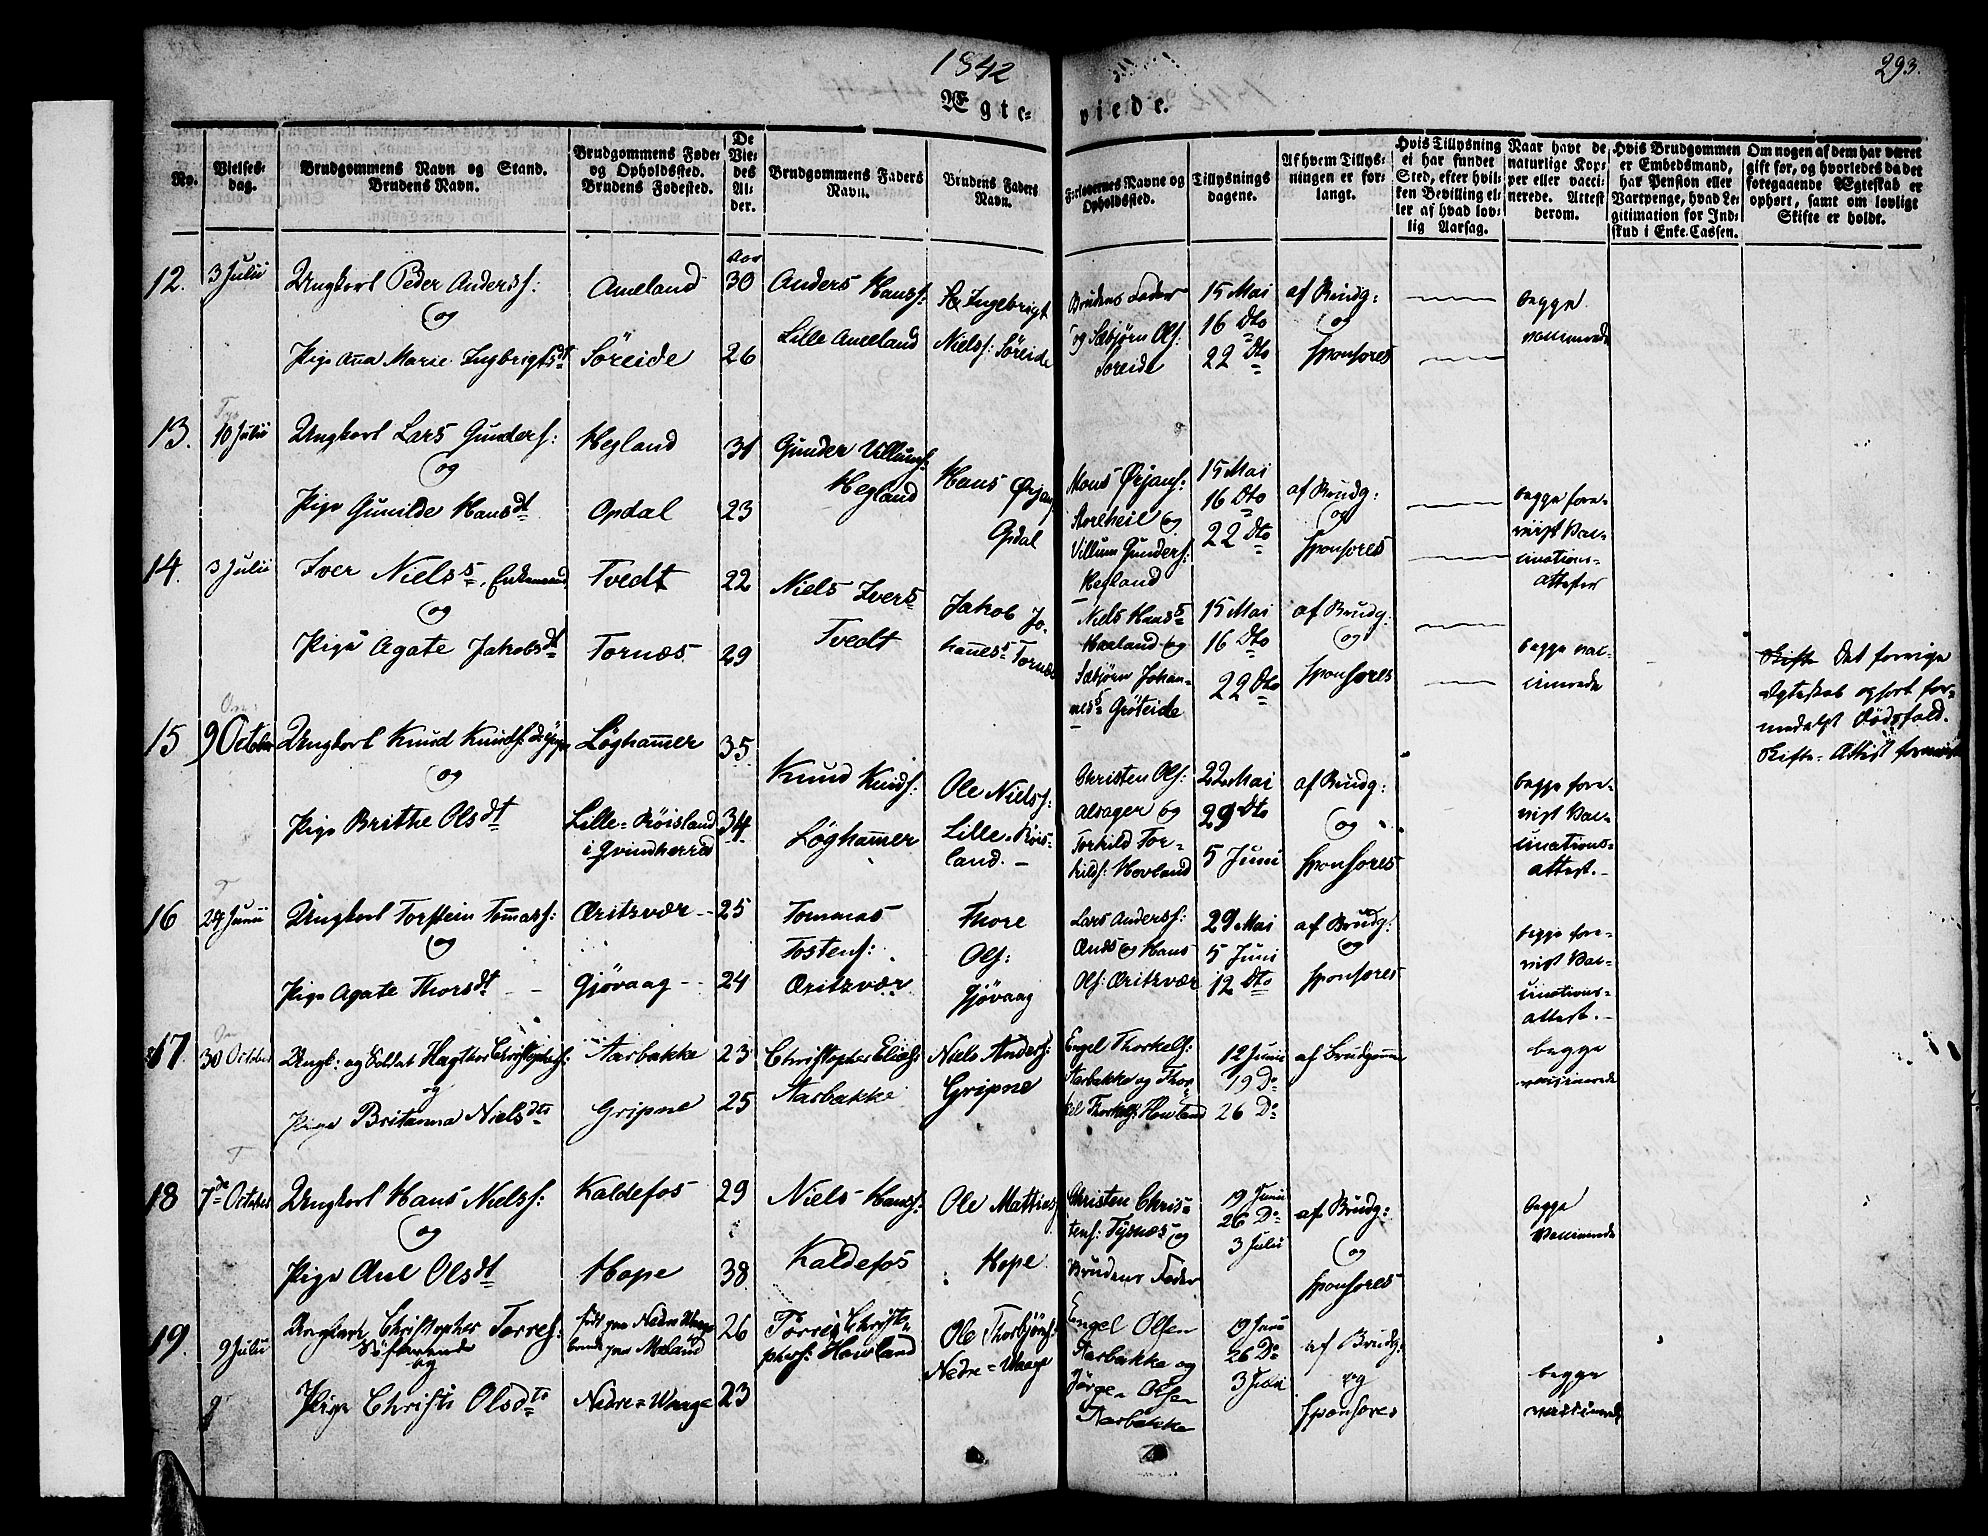 1842
293.
Ægte- viede.
No.
Vielses-
dag.
Brudgommens Navn og Stand.
Brudens Navn.
Brudgommens Føde-
og Opholdssted.
Brudens Fødested.
De
Vie-
des
Al-
der.
Brudgommens Faders
Navn.
Brudens Faders
Navn.
Forlovernes Navne og
Opholdssted.
Tillysnings
dagene.
Af hvem Tillys-
ningen er for-
langt.
Hvis Tillysning
ei har fundet
Sted, efter hvil-
ken Bevilling el-
ler af hvad lov-
lig Aarsag.
Naar havt de
naturlige Kop-
per eller vacci-
nerede. Attest
derom.
Hvis Brudgommen
er Embedsmand,
har Pension eller
Vartpenge, hvad Le-
gitimation for Ind-
skud i Enke-Cassen.
Om nogen af dem har været
gift før, og hvorledes da det
foregaaende Ægteskab er
ophørt, samt om lovligt
Skifte er holdt.
12.
3 Julii
Ungkarl Peder Anderss:
og
Pige Anna Marie Ingbrigtsdt
Ameland
Søreide
Aar
30
26
Anders Hanss:
Lille Ameland
Ingebrigt
Nielss: Søreide
Brudens Fader
og Sæbjørn Ols:
Søreide
15 Mai
16 Dto
22 Dto
af Brudg:
og
Sponsores
begge
vaccinerede
13.
10 Julii
Ungkarl Lars Gunders:
og
Pige Gunilde Hansdt
Hegland
Opdal
31
23
Gunder Villums:
Hegland
Hans Ørjans
Opdal
Mons Ørjans:
og
Villum Gunders:
Hegland
15 Mai
16 Dto
22 Dto
af Brudg:
og
Sponsores
begge fore-
vist Vac-
cinations-
Attester
14.
3 Julii
Iver Nielss, Enkemand
og
Pige Agate Jakobsdt
Tvedt
Tornæs
22
29
Niels Ivers
Tvedt
Jakob Jo-
hannes: Tornæs
Niels Hans
Haaland og
Sæbjørn Johan-
nes: Grøteide
15 Mai
16 Dto
22 Dto
af Brudg:
og
Sponsores
begge vac-
cinerede
Skifte Det forrige
Ægteskab ophørt for-
medelst Dødsfald.
Skifte-Attest forevist
15
9 October
Ungkarl Knud Knuds:
og
Pige Brithe Olsdt
Løghammer
Lille-Røisland
i Qvindherred
35
34
Knud Knuds:
Løghammer
Ole Niels:
Lille-Røis-
land.
Christen Ols:
Alsager og
Torkild Tor-
kilds: Hovland
22 Mai
29 Dto
5 Juni
af Brudg:
og
Sponsores
begge fore-
vist Vac-
cinations-
attest.
16
24 Junii
Ungkarl Torstein Tomass:
og
Pige Agate Thorsdt
Øritzvær
Gjøvaag
25
24
Tommas
Tostens:
Øritzvær
Thore
Ols:
Gjøvaag
Lars Anders:
og Hans
Ols: Øritzvær
29 Mai
5 Juni
12 Dto
af Brudg:
og
Sponsores
begge fore-
vist Vac-
cinations-
attest.
17.
30 October
Ungk: og Soldat Hagthor Christophers:
og
Pige Britanna Nielsdtr
Aarbakke
Gripne
23
25
Christopher Elias:
Aarbakke
Niels Anders:
Gripne
Engel Thorkels:
Aarbakke og Thor-
kel Thorkels: Howland
12 Junii
19 Do
26 Do
af Brudgomme
begge
vaccinerede
18
7de October
Ungkarl Hans Nielss:
og
Pige Anl Olsdt
Kaldefos
Hope
29
38
Niels Hans:
Kaldefos
Ole Mattias
Hope
Christen Chris-
tens: Tysnæs og
Brudens Fader
19 Junii
26 Do
3 Julii
af Brudg:
og
Sponsores
begge
vaccinerede
19.
9 Julii
Ungkarl Christopher Torres:
Søfarende
og
Pige Christi Olsdtr
født paa Nedre Waage
boende paa Meland
Nedre-Waage
26
23
Torres Christo-
phers: Howland
Ole Thorbjørns:
Nedre-Waage
Engel Olsen
Aarbakke og
Jørgen Olsen
Aarbakke
19 Juni
26 Do
3 Julii
af Brudg:
og
Sponsores
begge
vaccinerede